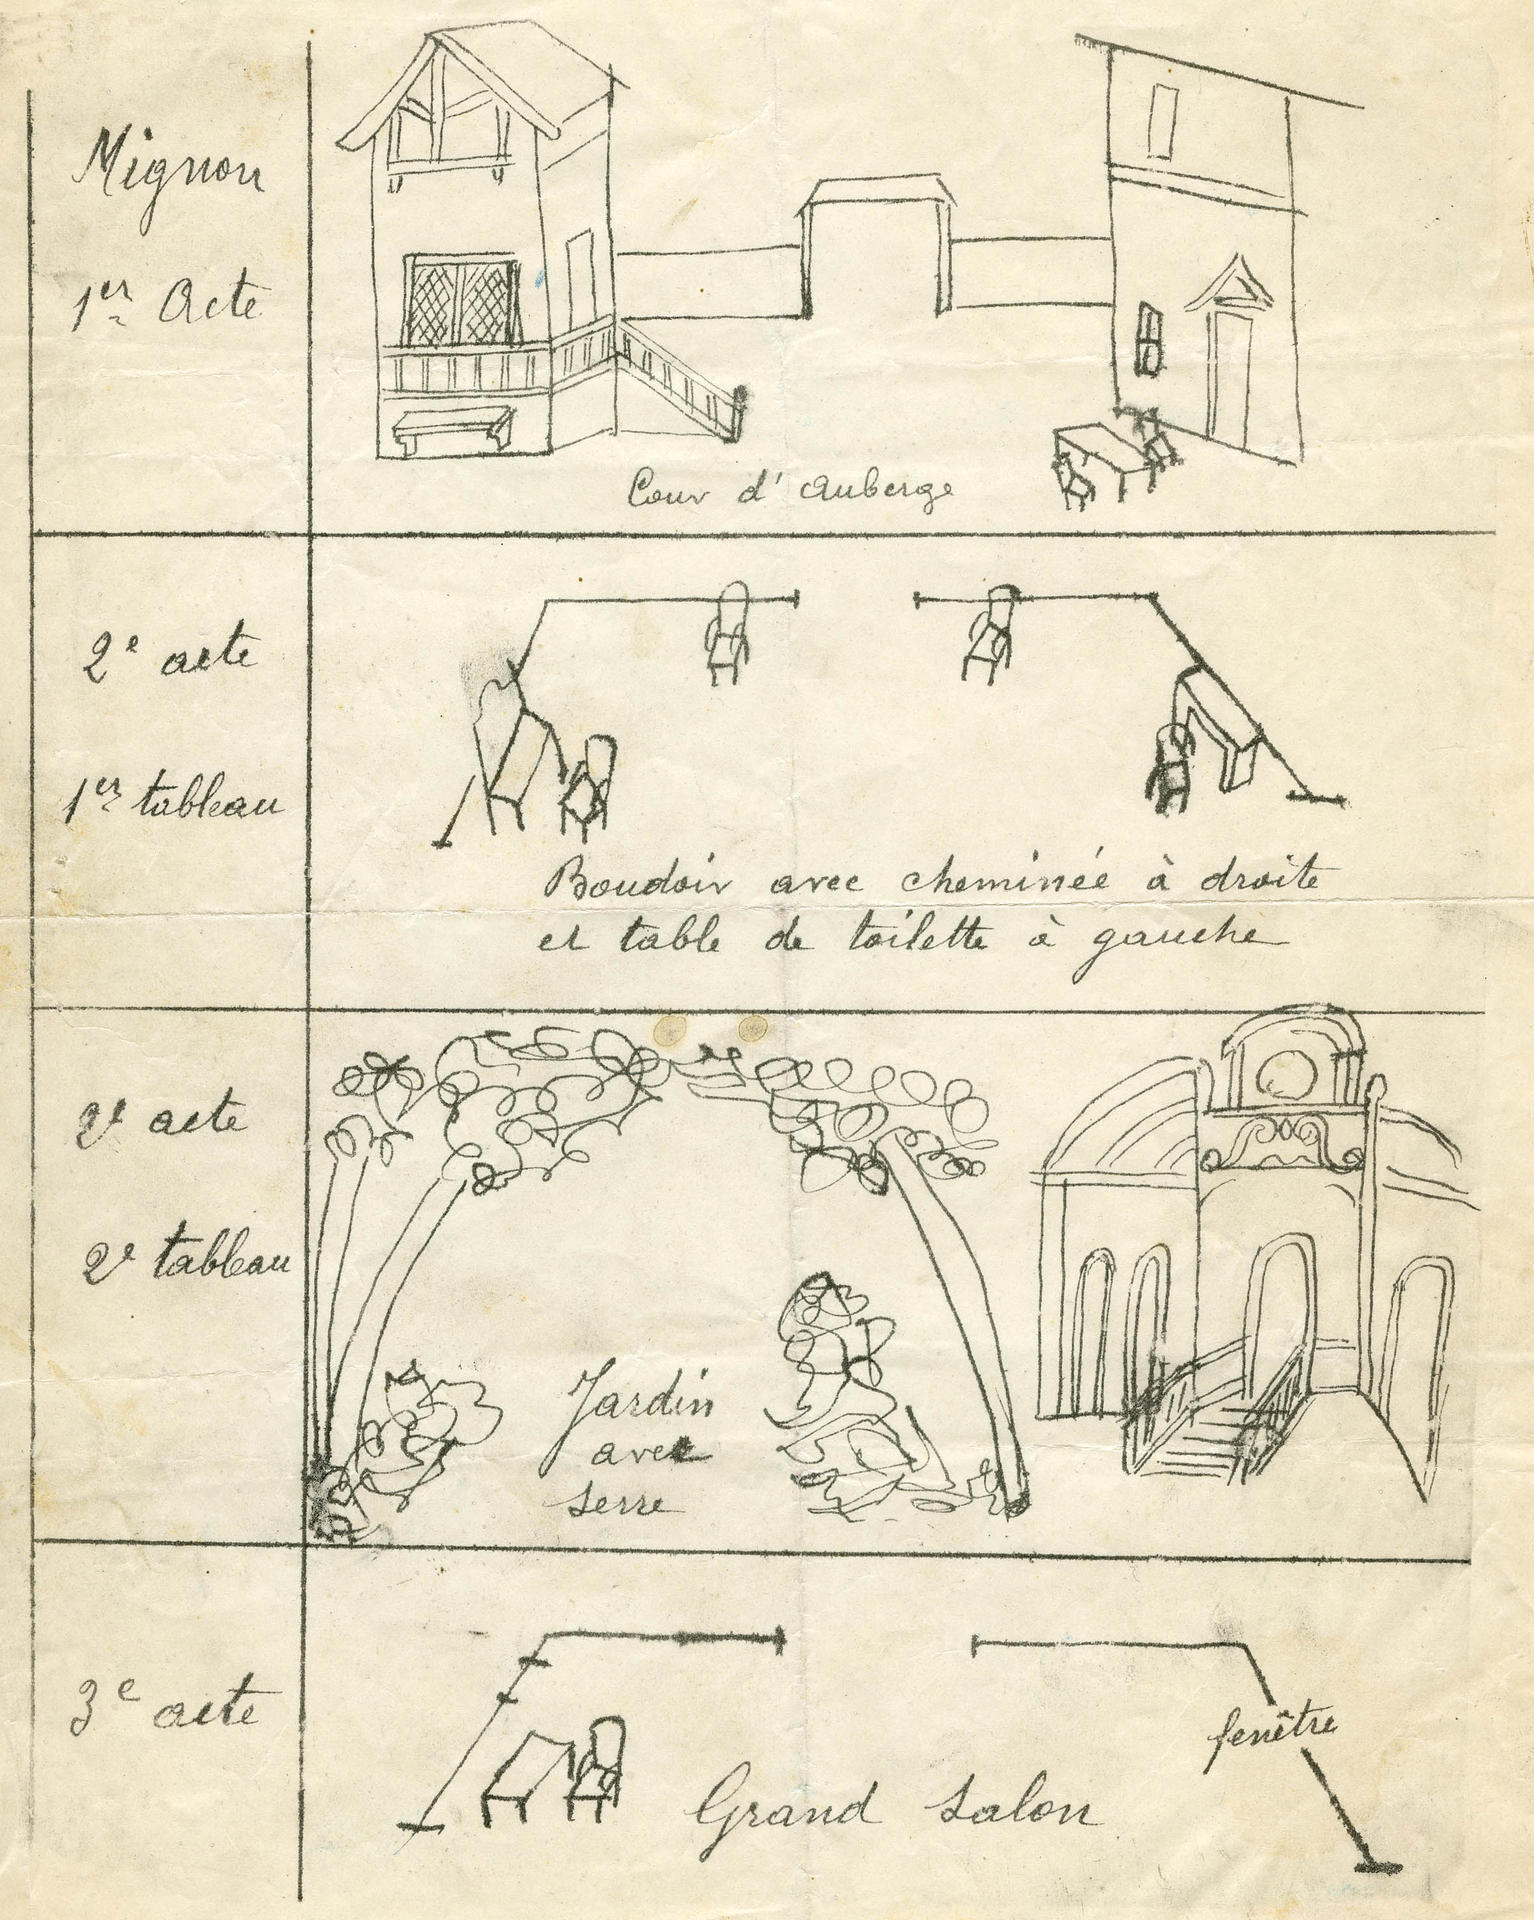 Mignon
1er Acte
Cour d'Auberge
2e acte
1er tableau
Boudoir avec cheminéé à droite
et table de toilette à gauche
2e acte
2e tableau
Jardin
avec
serre
3e acte
fenêtre
Grand salon